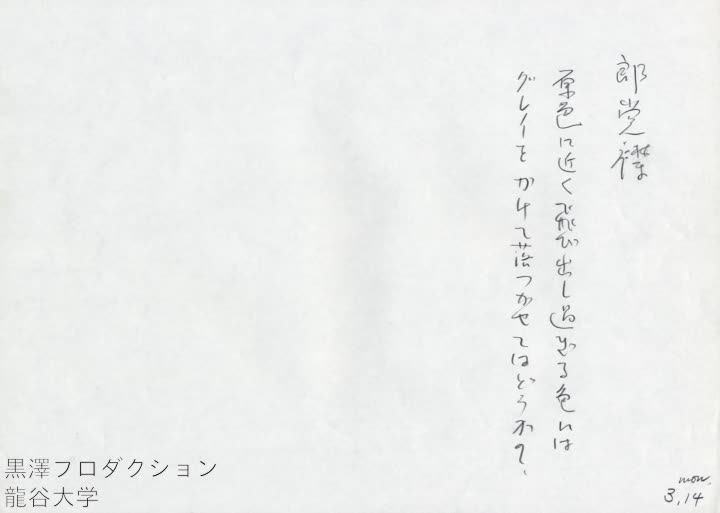 郎党襟
原色に近く飛び出し過ぎる色には
グレイをかけて落つかせてはどうわの、
mon.
3,14
黒澤プロダクション
龍谷大学